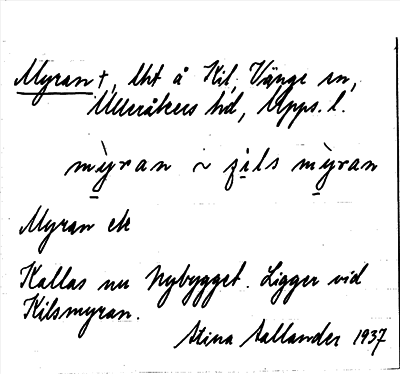 Myran †, lht å Kil, Vänge sn,
Ulleråkers hd, Upps. l.
mỳran ~ çils mỳran
Myran ek
Kallas nu Nybygget. Ligger vid
Kilsmyran.
Stina Sallander 1937